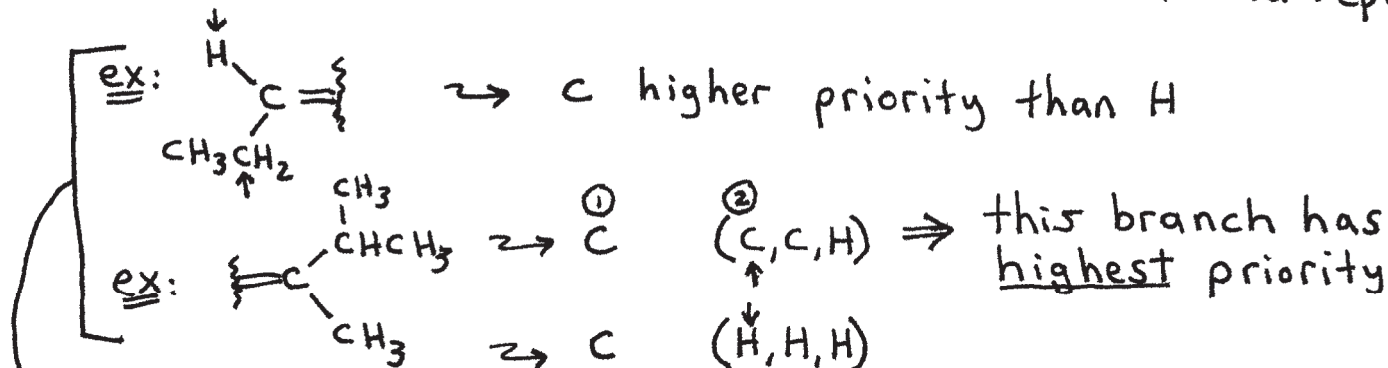 ex: H C= CH3CH2 → C higher priority than H
CH3
ex: =C CHCH3 → ① C ② (C,C,H) ⇒ this branch has
highest priority
CH3 → C (H,H,H)